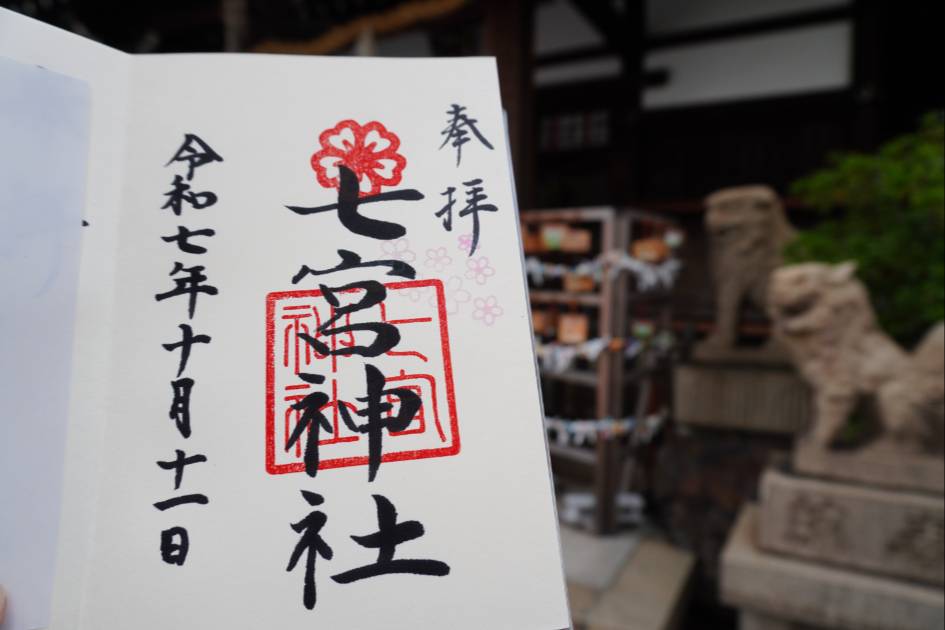 奉拝
七宮神社
七宮
神社
令和七年十月十一日